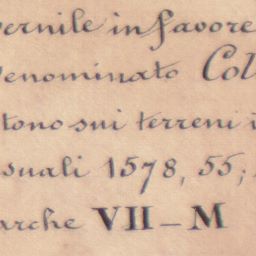 vernile in favore
denominato Col
tono sui terreni i
suali 1578, 55;
arche VII – M